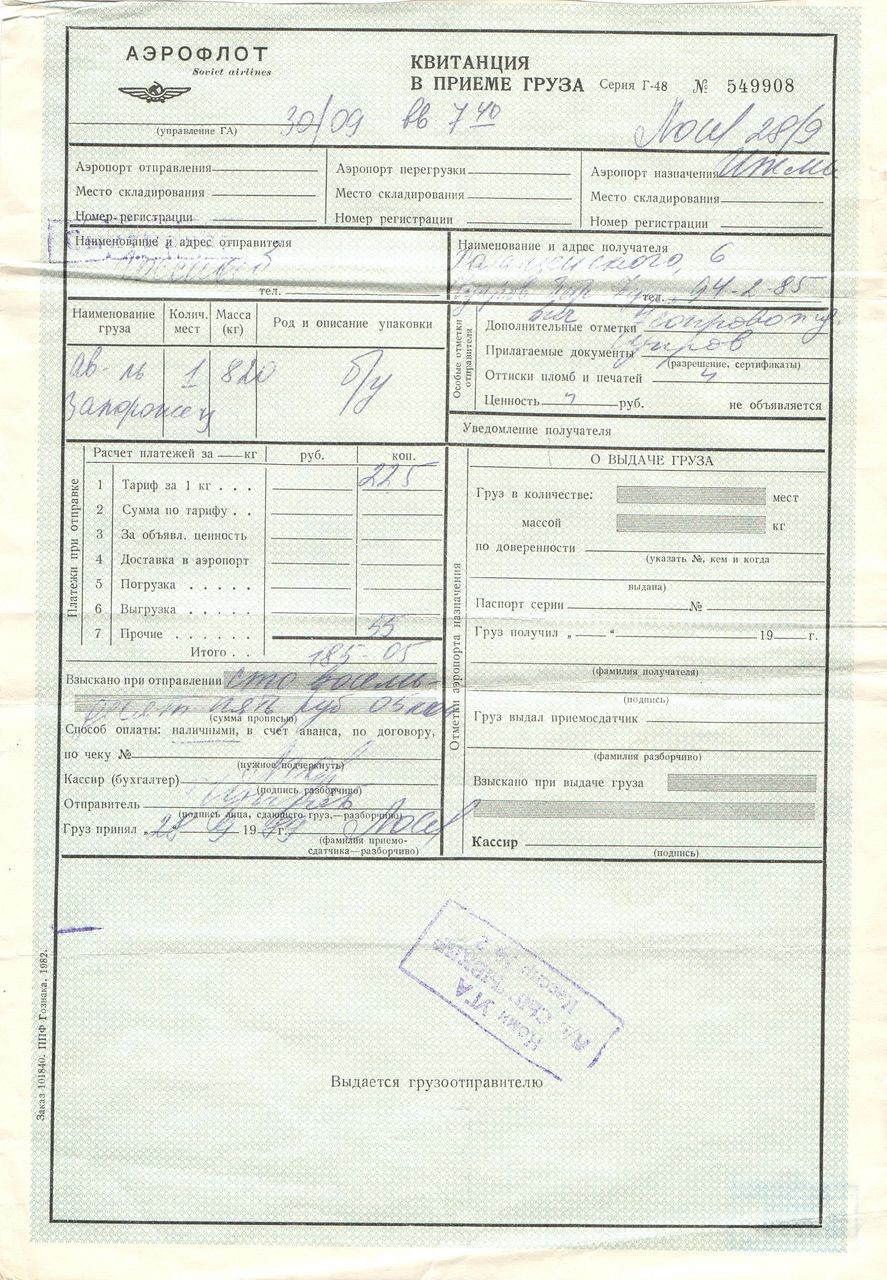 АЭРОФЛОТ
Soviet airlines
КВИТАНЦИЯ
В ПРИЕМЕ ГРУЗА Серия Г-48 № 549908
(управление ГА) 30/09 вв 7 40
28/9
Аэропорт отправления Аэропорт перегрузки Аэропорт назначения Ижма
Место складирования Место складирования Место складирования
Номер регистрации Номер регистрации Номер регистрации
Наименование и адрес отправителя
тел.
Наименование и адрес получателя
6
тел. 94-2-85
Наименование груза Колич. мест Масса (кг) Род и описание упаковки
ав-ль 1 820 б/у
Запорожец
Особые отметки отправителя
Дополнительные отметки
Прилагаемые документы
(разрешение, сертификаты)
Оттиски пломб и печатей
Ценность руб. не объявляется
Уведомление получателя
Платежи при отправке
Расчет платежей за кг руб. коп.
1 Тариф за 1 кг . . . 225
2 Сумма по тарифу . .
3 За объявл. ценность
4 Доставка в аэропорт
5 Погрузка . . . . .
6 Выгрузка . . . . .
7 Прочие . . . . . . 55
Итого . . 185-05
Взыскано при отправлении сто восемь-
десят пять руб 05 коп
(сумма прописью)
Способ оплаты: наличными, в счет аванса, по договору,
по чеку №
(нужное подчеркнуть)
Кассир (бухгалтер)
(подпись разборчиво)
Отправитель
(подпись лица, сдающего груз,—разборчиво)
Груз принял „28 9 19 г.
(фамилия приемо-
сдатчика—разборчиво)
Отметки аэропорта назначения
О ВЫДАЧЕ ГРУЗА
Груз в количестве: мест
массой кг
по доверенности
(указать №, кем и когда
выдана)
Паспорт серии №
Груз получил „ “ 19 г.
(фамилия получателя)
(подпись)
Груз выдал приемосдатчик
(фамилия разборчиво)
Взыскано при выдаче груза
Кассир
(подпись)
Коми УГА
Кассир № 2
Выдается грузоотправителю
Заказ 101840. ППФ Гознака, 1982.